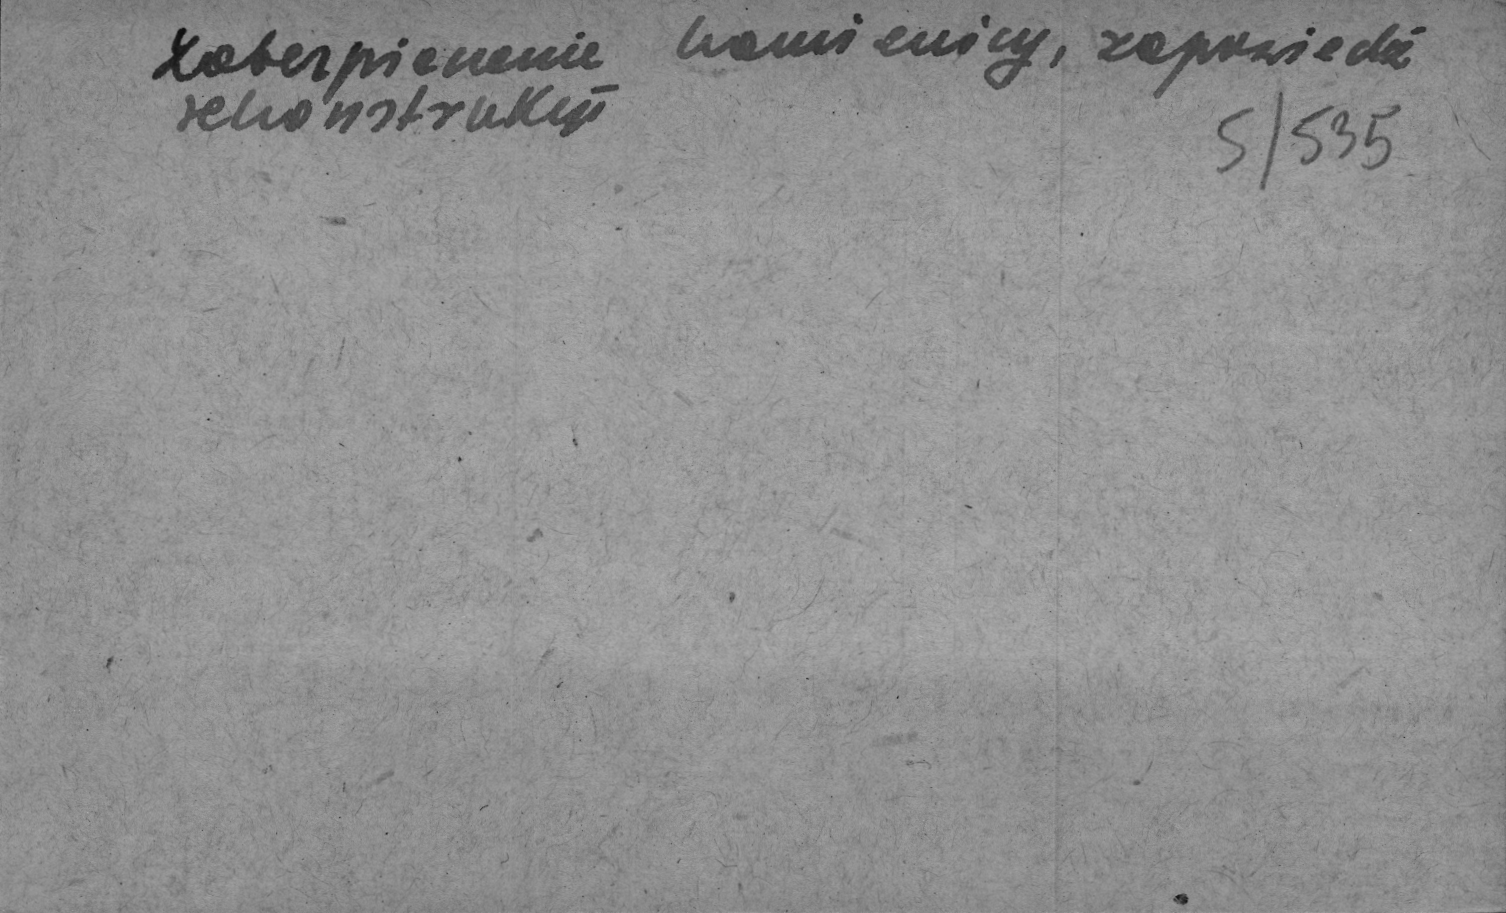 Zabezpieczenie kamienicy, zapowiedź
rekonstrukcji
S/535